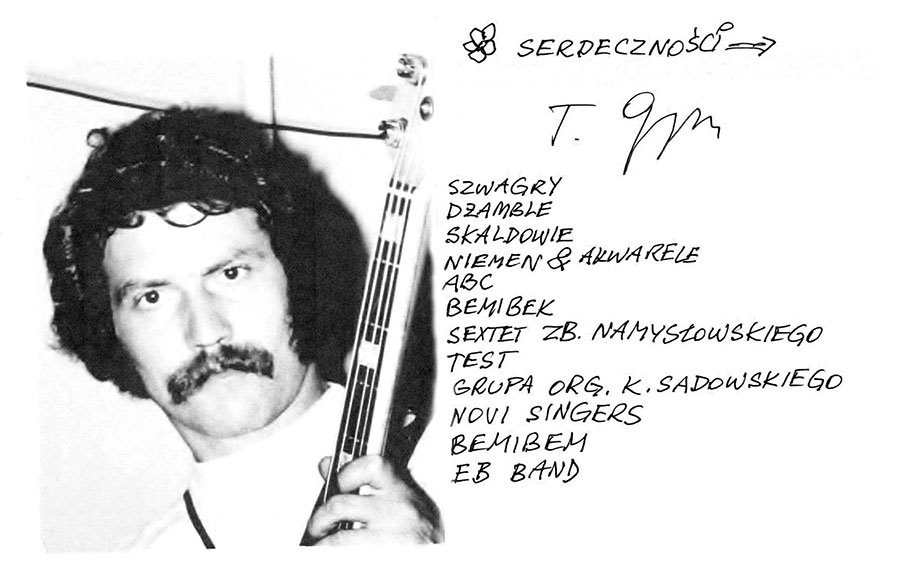 SERDECZNOŚCI →
T.
SZWAGRY
DŻAMBLE
SKALDOWIE
NIEMEN & AKWARELE
ABC
BEMIBEK
SEXTET ZB. NAMYSŁOWSKIEGO
TEST
GRUPA ORG. K. SADOWSKIEGO
NOVI SINGERS
BEMIBEM
EB BAND